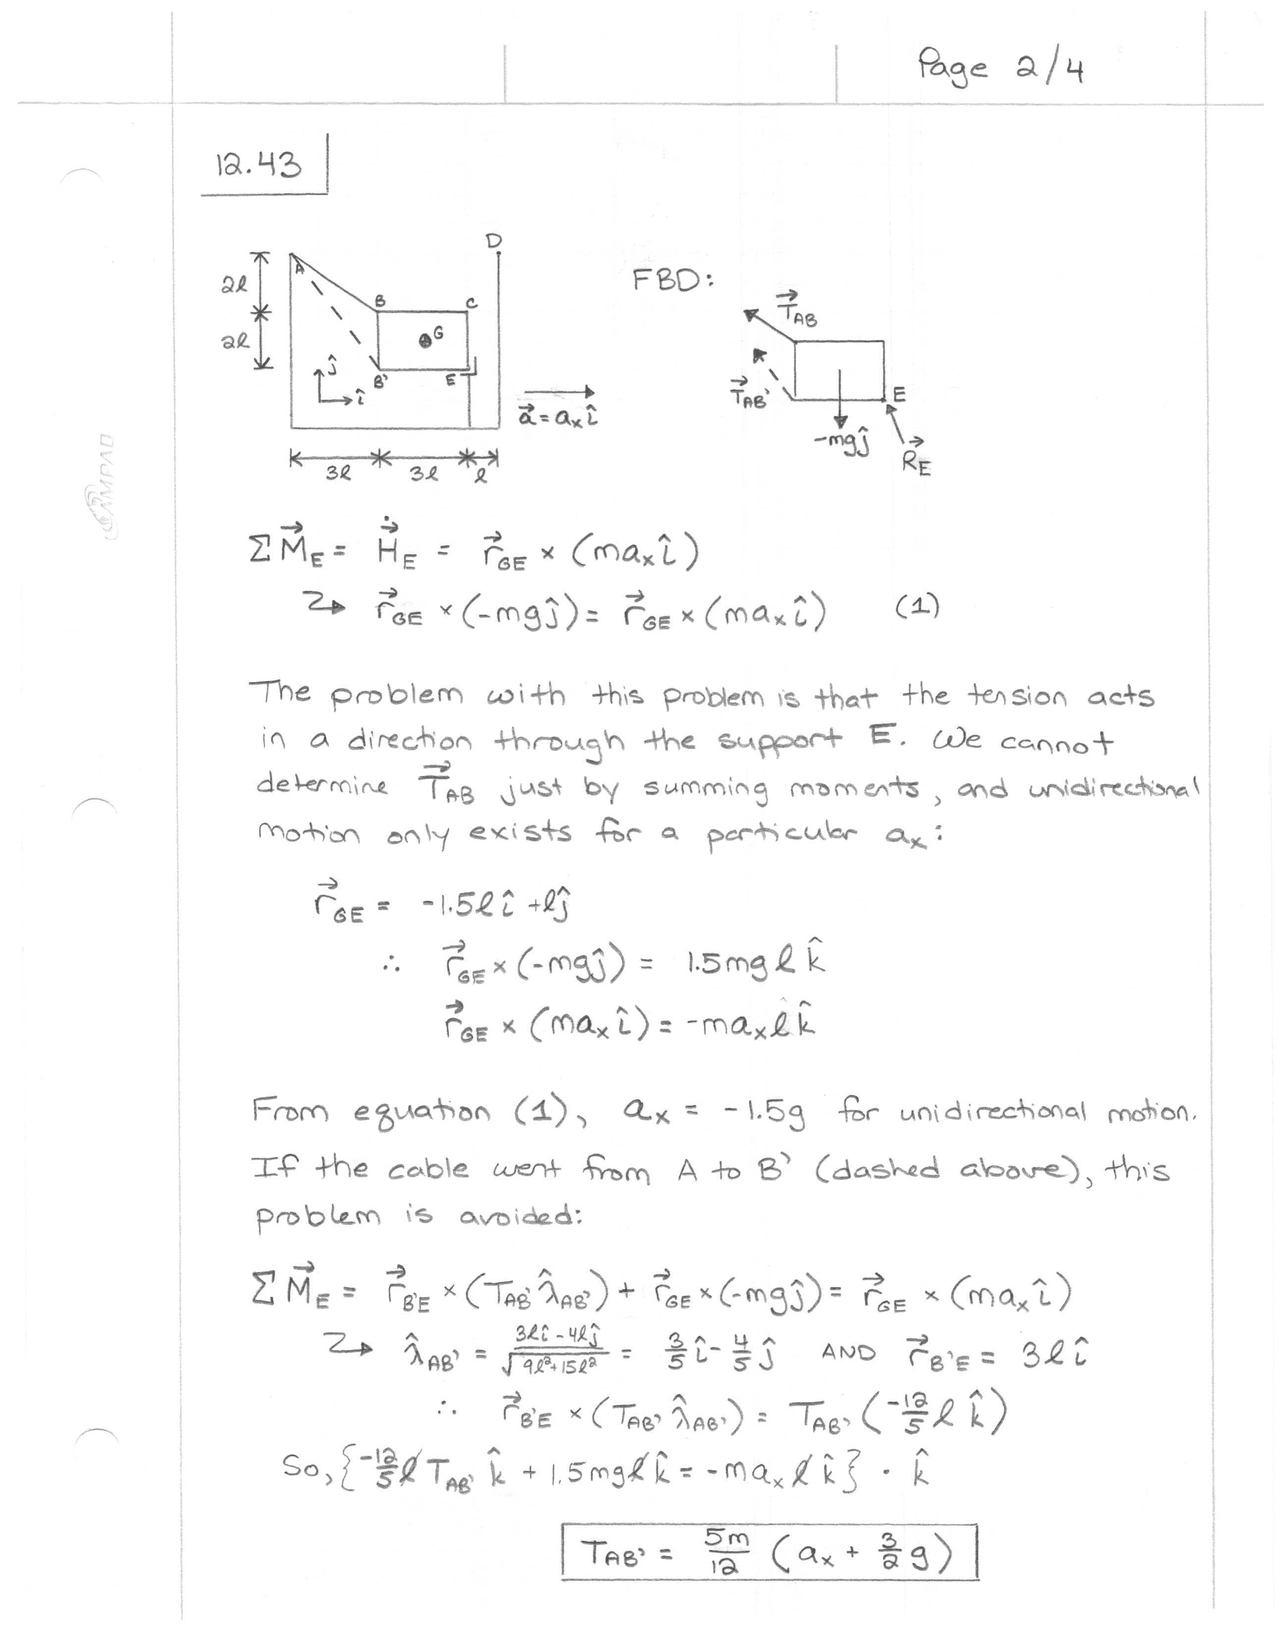 Page 2/4
12.43
D
2l
A
B
C
FBD:
T⃗_AB
2l
G
ĵ
B'
E
î
T⃗_AB'
E
a⃗ = a_x î
-mgĵ
R⃗_E
3l 3l l
AMPAD
ΣM⃗_E = H⃗̇_E = r⃗_GE × (ma_x î)
↳ r⃗_GE × (-mgĵ) = r⃗_GE × (ma_x î) (1)
The problem with this problem is that the tension acts
in a direction through the support E. We cannot
determine T⃗_AB just by summing moments, and unidirectional
motion only exists for a particular a_x:
r⃗_GE = -1.5lî + lĵ
∴ r⃗_GE × (-mgĵ) = 1.5mglk̂
r⃗_GE × (ma_x î) = -ma_x lk̂
From equation (1), a_x = -1.5g for unidirectional motion.
If the cable went from A to B' (dashed above), this
problem is avoided:
ΣM⃗_E = r⃗_B'E × (T_AB' λ̂_AB') + r⃗_GE × (-mgĵ) = r⃗_GE × (ma_x î)
↳ λ̂_AB' = (3lî - 4lĵ)/√(9l² + 15l²) = 3/5 î - 4/5 ĵ AND r⃗_B'E = 3lî
∴ r⃗_B'E × (T_AB' λ̂_AB') = T_AB' (-12/5 l k̂)
So, {-12/5 l T_AB' k̂ + 1.5mglk̂ = -ma_x l k̂} · k̂
T_AB' = 5m/12 (a_x + 3/2 g)